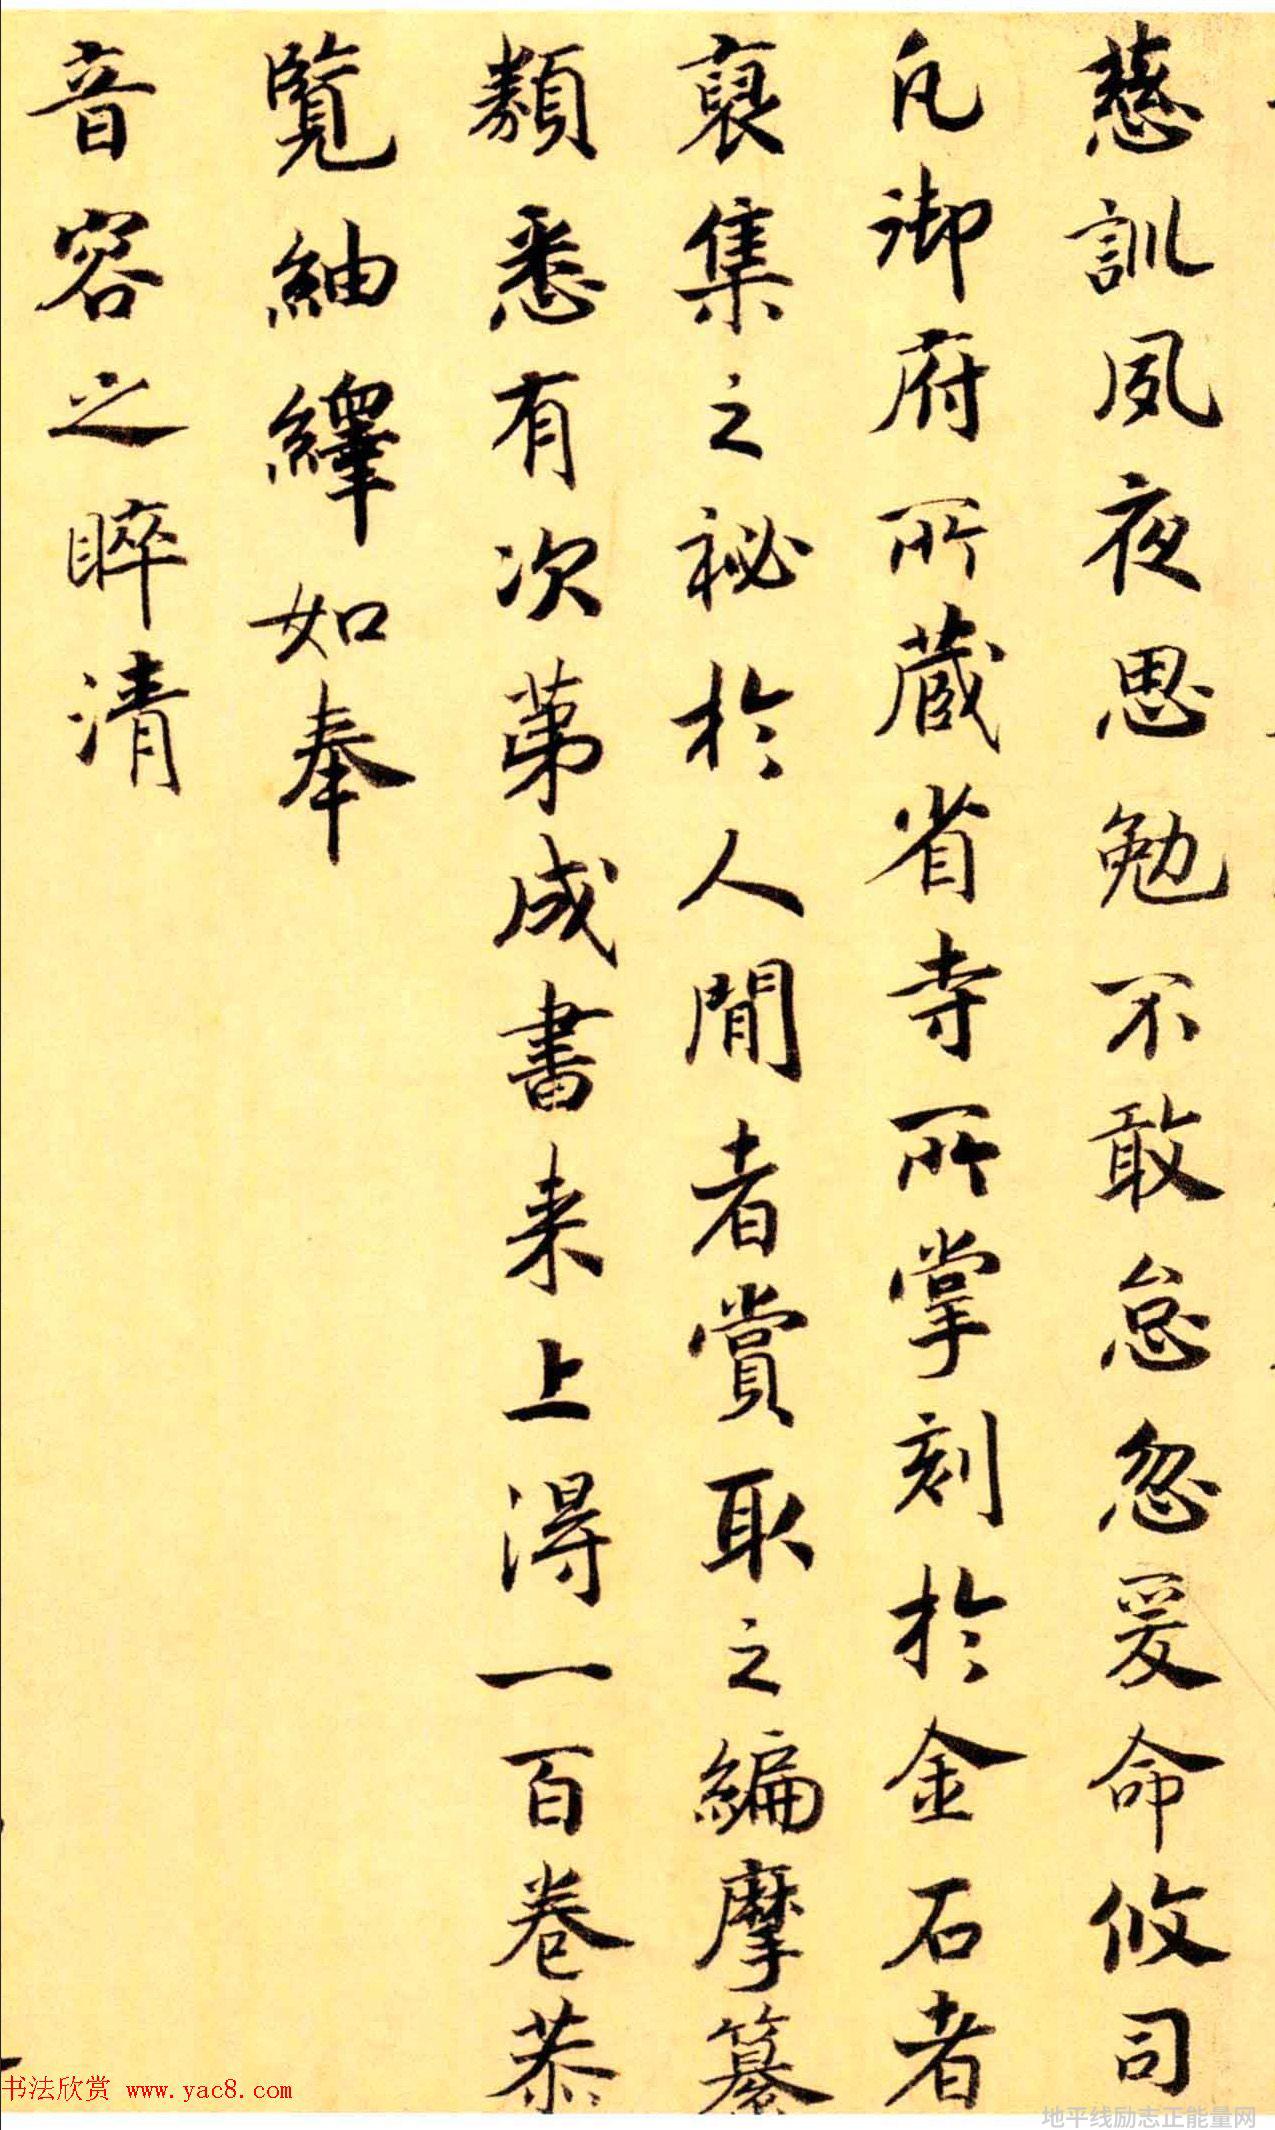 慈訓夙夜思勉不敢怠忽爰命攸司
凡御府所蔵省寺所掌刻於金石者
裒集之祕於人間者賞取之編摩纂
類悉有次苐成書来上得一百卷恭
覽紬繹如奉
音容之睟清
书法欣赏 www.yac8.com
地平线励志正能量网